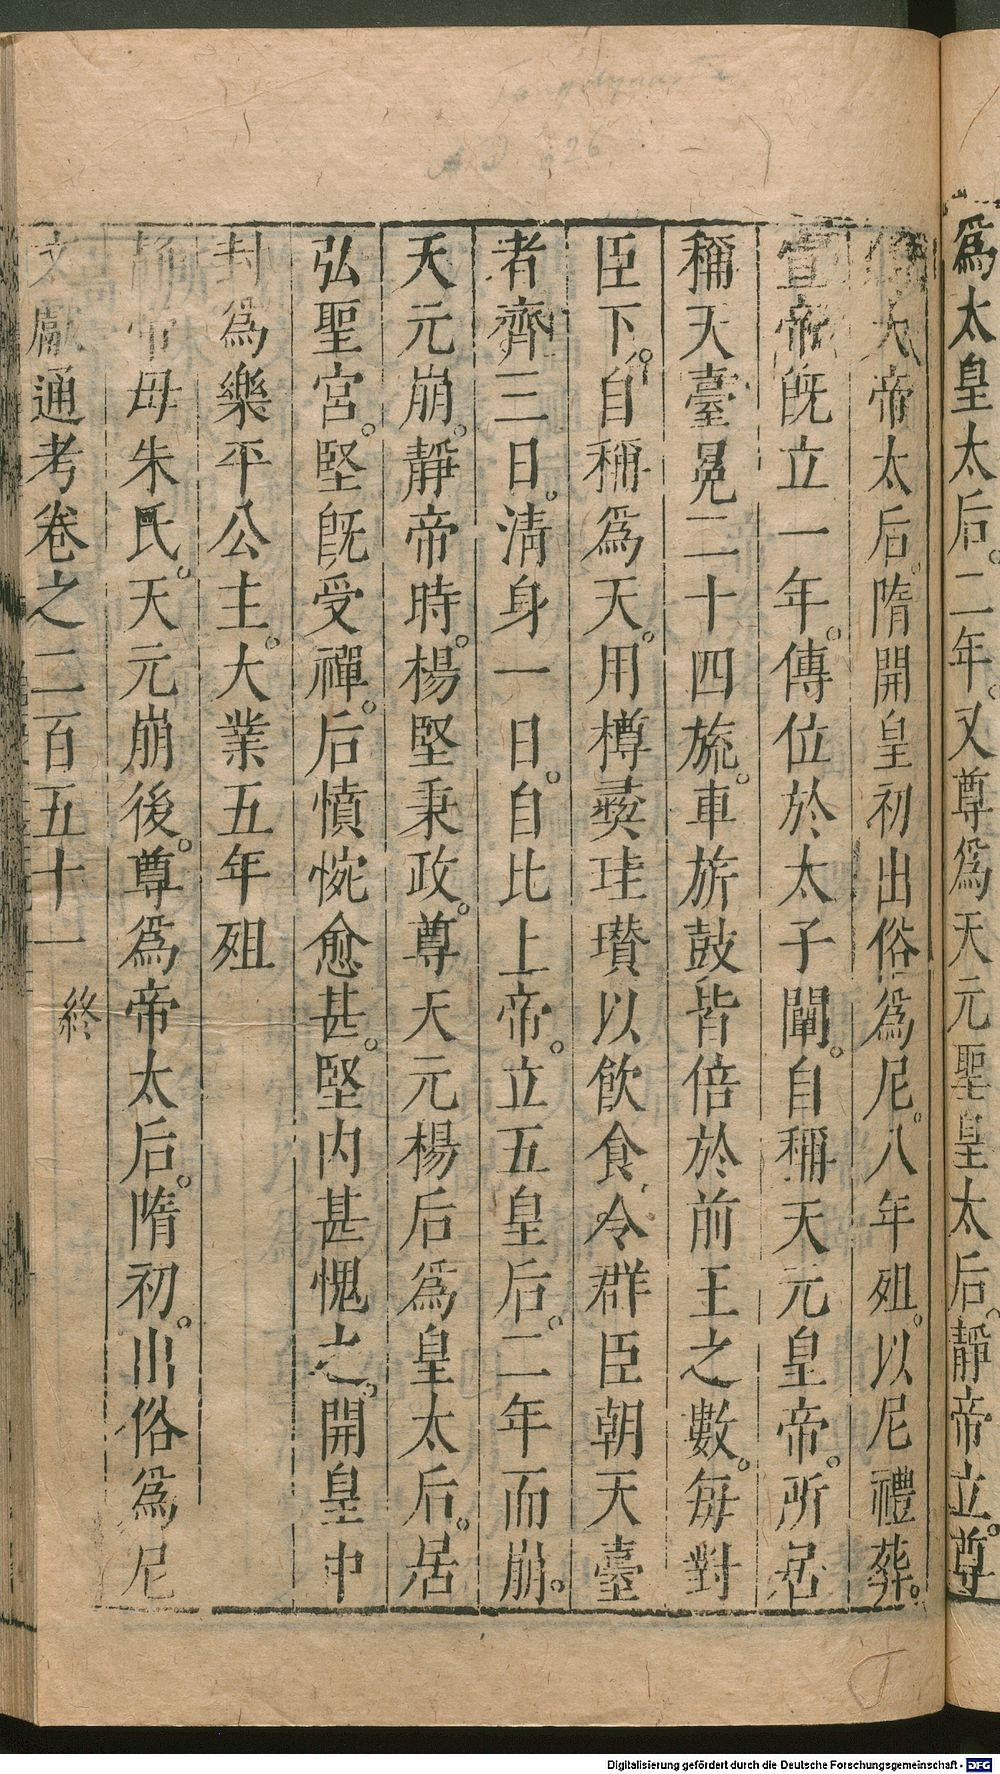 爲太皇太后。二年。又尊爲天元聖皇太后。靜帝立。尊
太帝太后。隋開皇初出俗爲尼。八年殂。以尼禮葬。
宣帝旣立一年。傳位於太子闡。自稱天元皇帝。所居
稱天臺冕二十四旒。車旂鼓皆倍於前王之數。每對
臣下。自稱爲天。用樽彛珪瓚以飲食令群臣朝天臺
者齊三日。清身一日。自比上帝。立五皇后。二年而崩。
天元崩。靜帝時。楊堅秉政。尊天元楊后爲皇太后。居
弘聖宮。堅旣受禪。后憤惋愈甚。堅内甚愧之。開皇中
封爲樂平公主。大業五年殂
靜帝母朱氏。天元崩後。尊爲帝太后。隋初。出俗爲尼
文獻通考卷之二百五十一 終
A.D. 626
Digitalisierung gefördert durch die Deutsche Forschungsgemeinschaft - DFG